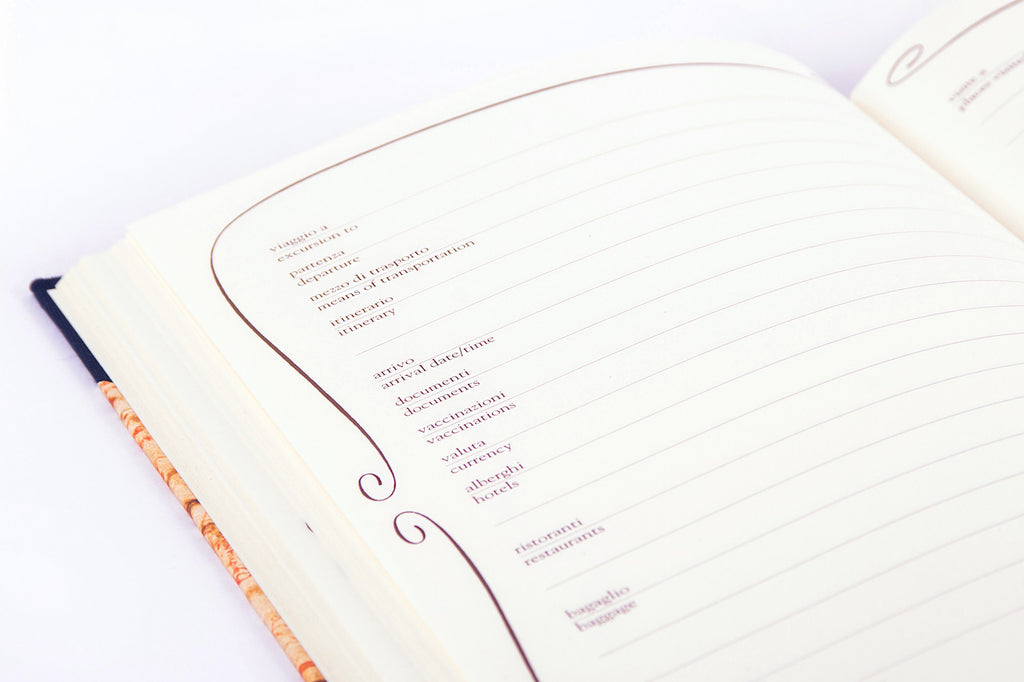 viaggio a
excursion to
partenza
departure
mezzo di trasporto
means of transportation
itinerario
itinerary
arrivo
arrival date/time
documenti
documents
vaccinazioni
vaccinations
valuta
currency
alberghi
hotels
ristoranti
restaurants
bagaglio
baggage
visite a
places